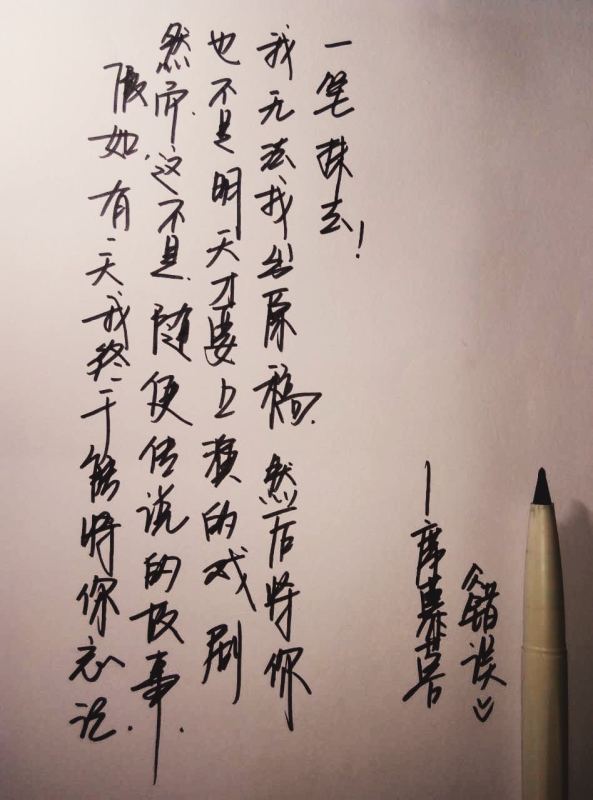 假如有天我终于能将你忘记.
然而.这不是.随便传说的故事.
也不是明天才要上演的戏剧
我无法找出原稿.然后将你
一笔抹去!
—席慕蓉
《错误》